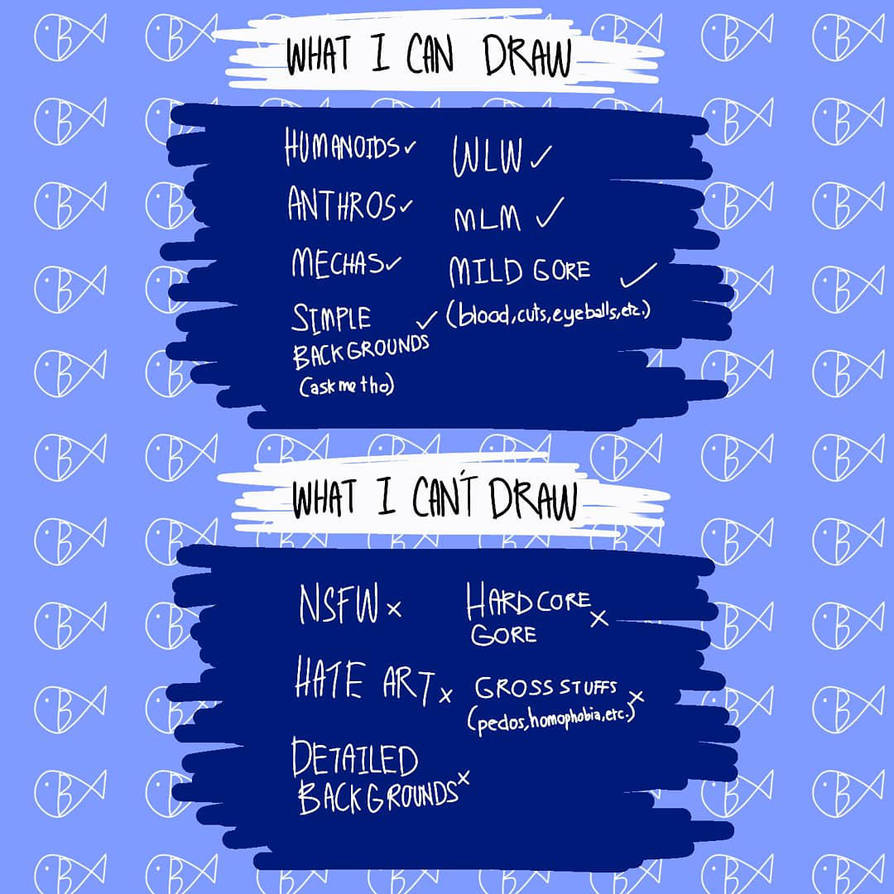 WHAT I CAN DRAW
HUMANOIDS✓
ANTHROS✓
MECHAS✓
SIMPLE ✓
BACKGROUNDS
(ask me tho)
WLW ✓
MLM ✓
MILD GORE ✓
(blood,cuts,eyeballs,etc.)
WHAT I CAN'T DRAW
NSFW x
HATE ART x
DETAILED
BACKGROUNDS x
HARDCORE x
GORE
GROSS STUFFS x
(pedos,homophobia,etc.)